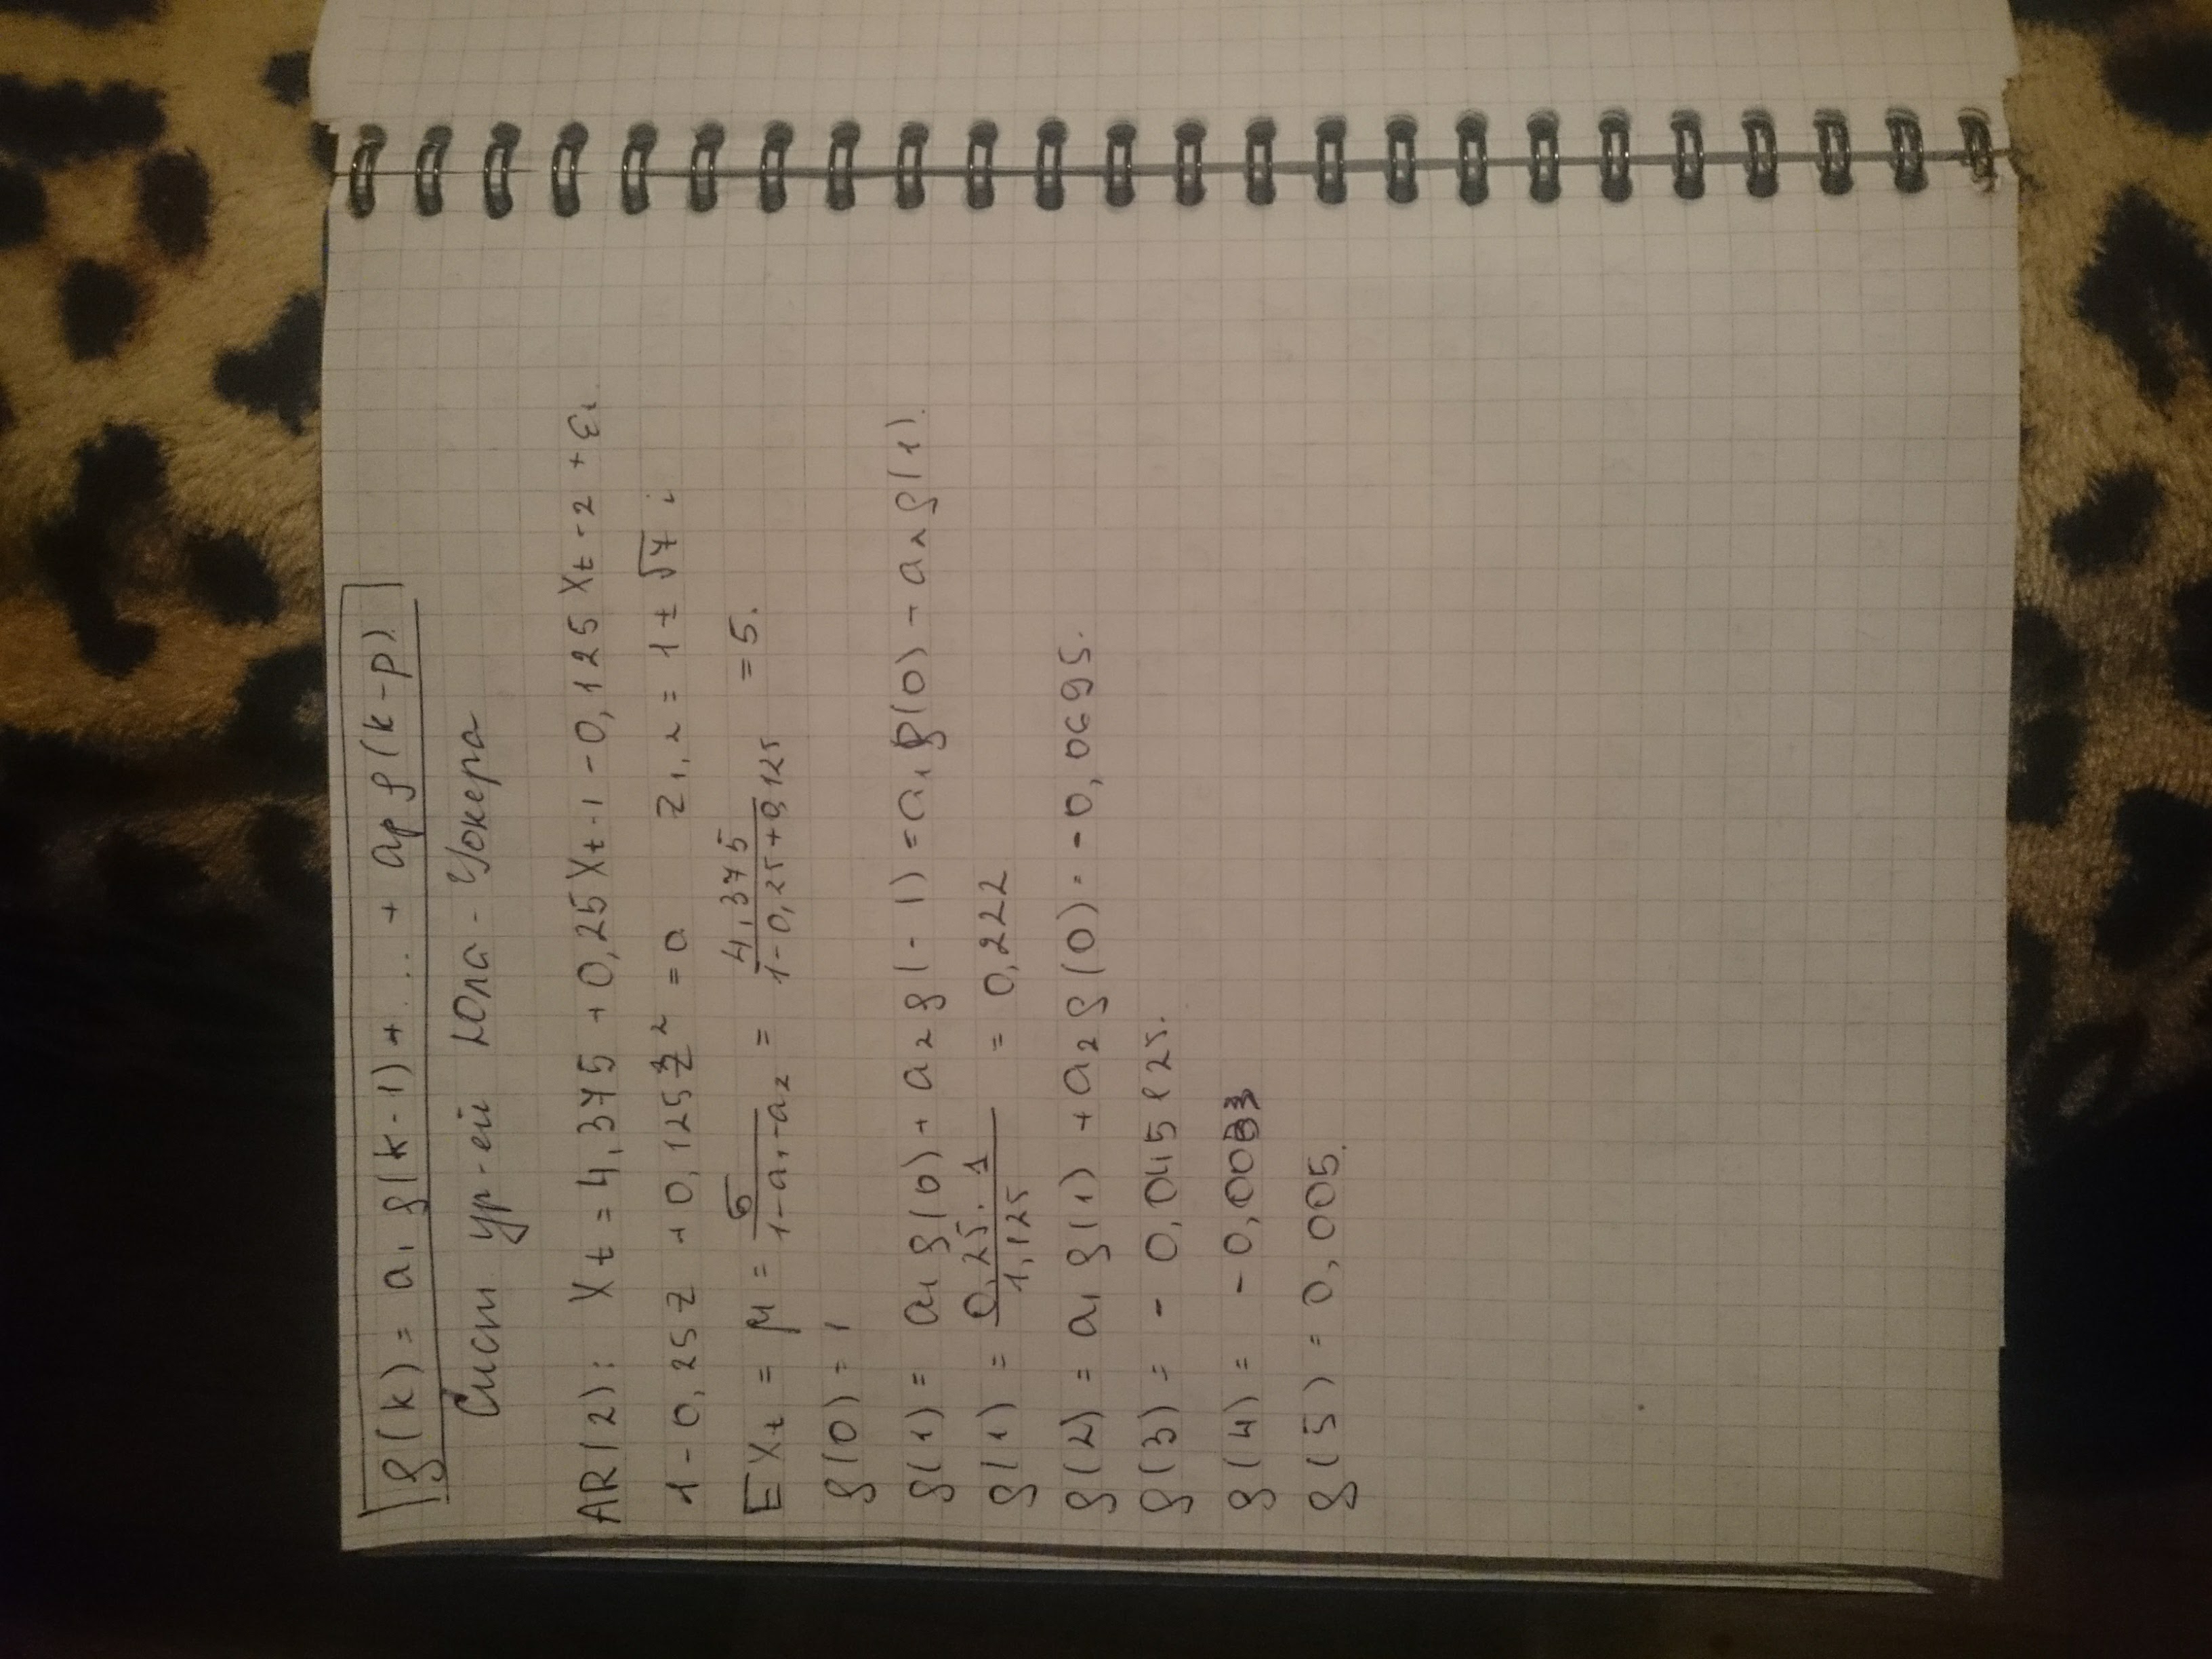 ρ(k) = a₁ ρ(k-1) + ... + aₚ ρ(k-p)
Сист ур-ей Юла-Уокера
AR(2): Xt = 4,375 + 0,25 Xt-1 - 0,125 Xt-2 + εt.
1 - 0,25z + 0,125z² = 0 z₁,₂ = 1 ± √7 i
EXt = μ = δ/(1-a₁-a₂) = 4,375/(1-0,25+0,125) = 5.
ρ(0) = 1
ρ(1) = a₁ρ(0) + a₂ρ(-1) = a₁ρ(0) - a₂ρ(1).
ρ(1) = 0,25·1/1,125 = 0,222
ρ(2) = a₁ρ(1) + a₂ρ(0) = -0,0695.
ρ(3) = -0,045125.
ρ(4) = -0,003
ρ(5) = 0,005.